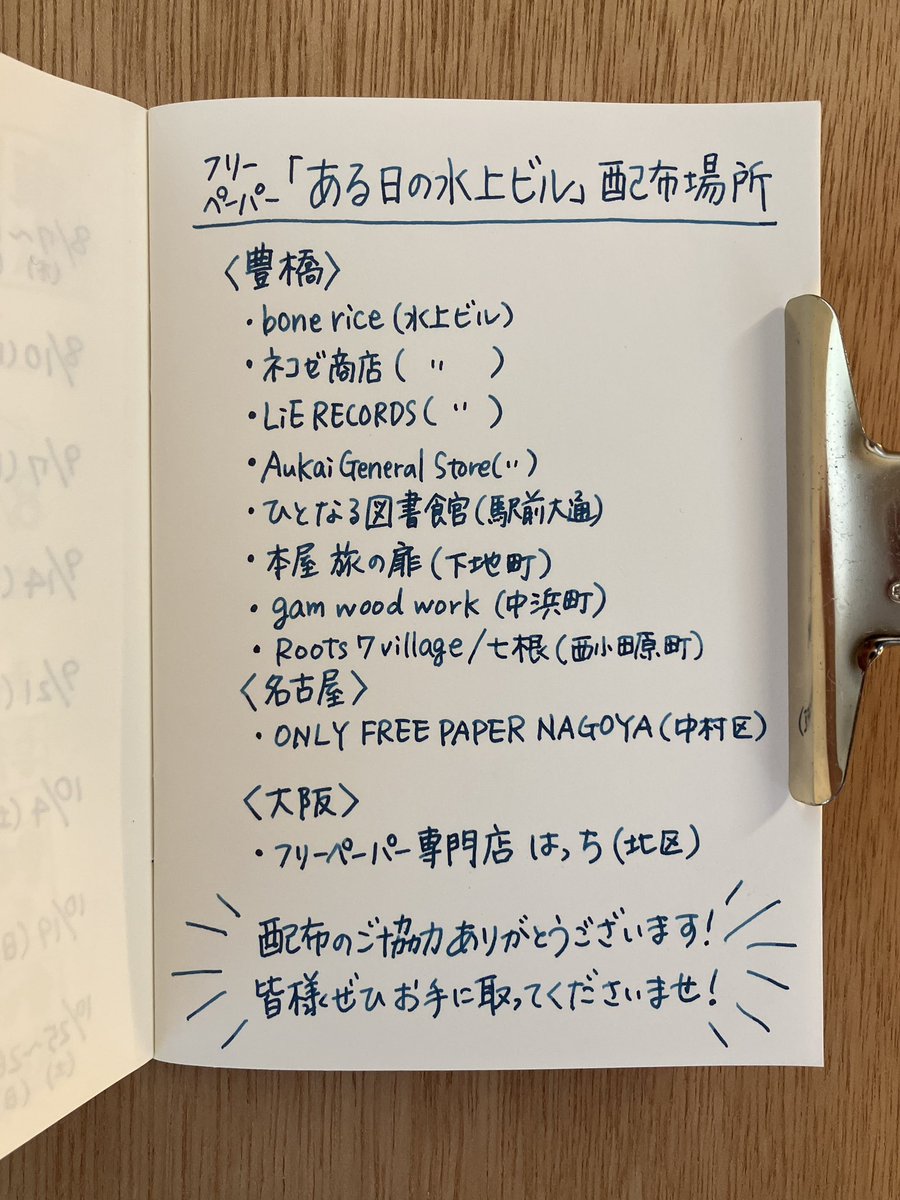 フリーペーパー「ある日の水上ビル」配布場所
〈豊橋〉
・bone rice (水上ビル)
・ネコゼ商店 ( 〃 )
・LiE RECORDS ( 〃 )
・Aukai General Store (〃)
・ひとなる図書館 (駅前大通)
・本屋 旅の扉 (下地町)
・gam wood work (中浜町)
・Roots 7 village/七根 (西小田原町)
〈名古屋〉
・ONLY FREE PAPER NAGOYA (中村区)
〈大阪〉
・フリーペーパー専門店 はっち (北区)
配布のご協力ありがとうございます!
皆様ぜひお手に取ってくださいませ!
8/9~
8/10
9/7
9/14
9/21
10/4
10/19
10/25~26